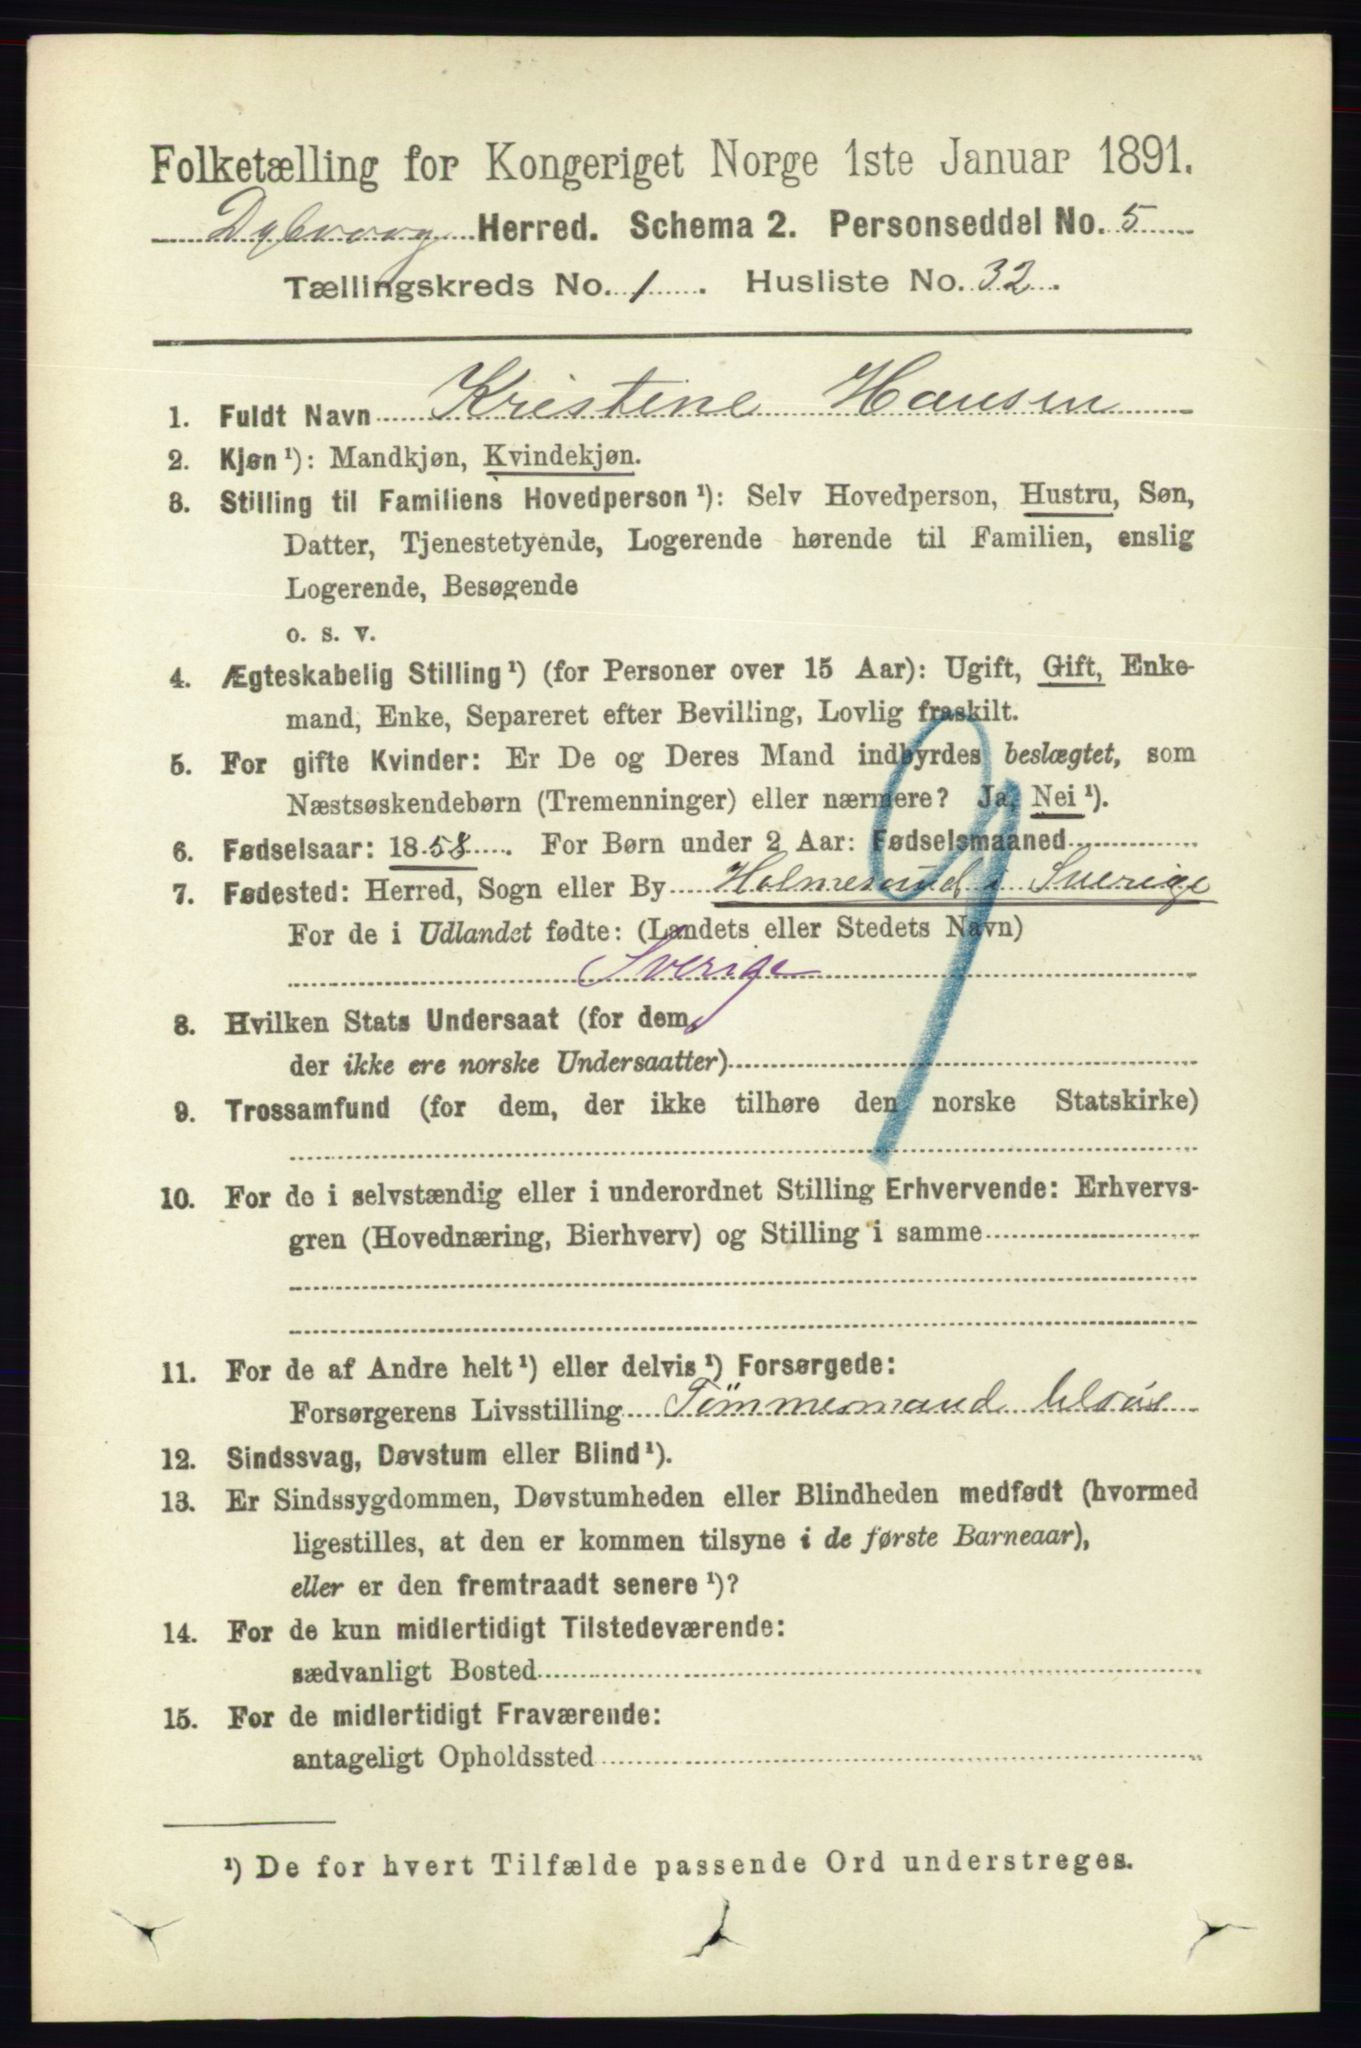 Folketælling for Kongeriget Norge 1ste Januar 1891.
Dybvaag Herred. Schema 2. Personseddel No. 5
Tællingskreds No. 1. Husliste No. 32.
1. Fuldt Navn Kristine Hansen
2. Kjøn¹): Mandkjøn, Kvindekjøn.
3. Stilling til Familiens Hovedperson¹): Selv Hovedperson, Hustru, Søn,
Datter, Tjenestetyende, Logerende hørende til Familien, enslig
Logerende, Besøgende
o. s. v.
4. Ægteskabelig Stilling¹) (for Personer over 15 Aar): Ugift, Gift, Enke-
mand, Enke, Separeret efter Bevilling, Lovlig fraskilt.
5. For gifte Kvinder: Er De og Deres Mand indbyrdes beslægtet, som
Næstsøskendebørn (Tremenninger) eller nærmere? Ja, Nei¹).
6. Fødselsaar: 1858. For Børn under 2 Aar: Fødselsmaaned
7. Fødested: Herred, Sogn eller By Holmesund i Sverige
For de i Udlandet fødte: (Landets eller Stedets Navn)
Sverige
8. Hvilken Stats Undersaat (for dem,
der ikke ere norske Undersaatter)
9. Trossamfund (for dem, der ikke tilhøre den norske Statskirke)
10. For de i selvstændig eller i underordnet Stilling Erhvervende: Erhvervs-
gren (Hovednæring, Bierhverv) og Stilling i samme
11. For de af Andre helt¹) eller delvis¹) Forsørgede:
Forsørgerens Livsstilling Tömmermand
12. Sindssvag, Døvstum eller Blind¹).
13. Er Sindssygdommen, Døvstumheden eller Blindheden medfødt (hvormed
ligestilles, at den er kommen tilsyne i de første Barneaar),
eller er den fremtraadt senere¹)?
14. For de kun midlertidigt Tilstedeværende:
sædvanligt Bosted
15. For de midlertidigt Fraværende:
antageligt Opholdssted
¹) De for hvert Tilfælde passende Ord understreges.